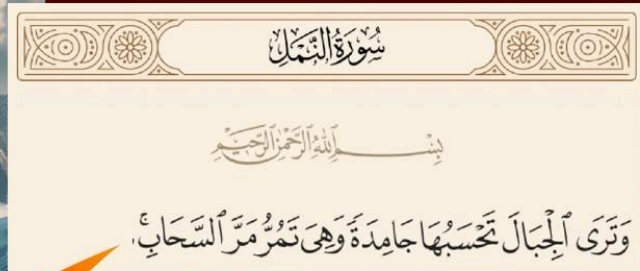 سُورَةُ النَّمْلِ
بِسْمِ ٱللَّهِ ٱلرَّحْمَٰنِ ٱلرَّحِيمِ
وَتَرَى ٱلْجِبَالَ تَحْسَبُهَا جَامِدَةً وَهِىَ تَمُرُّ مَرَّ ٱلسَّحَابِ ۚ